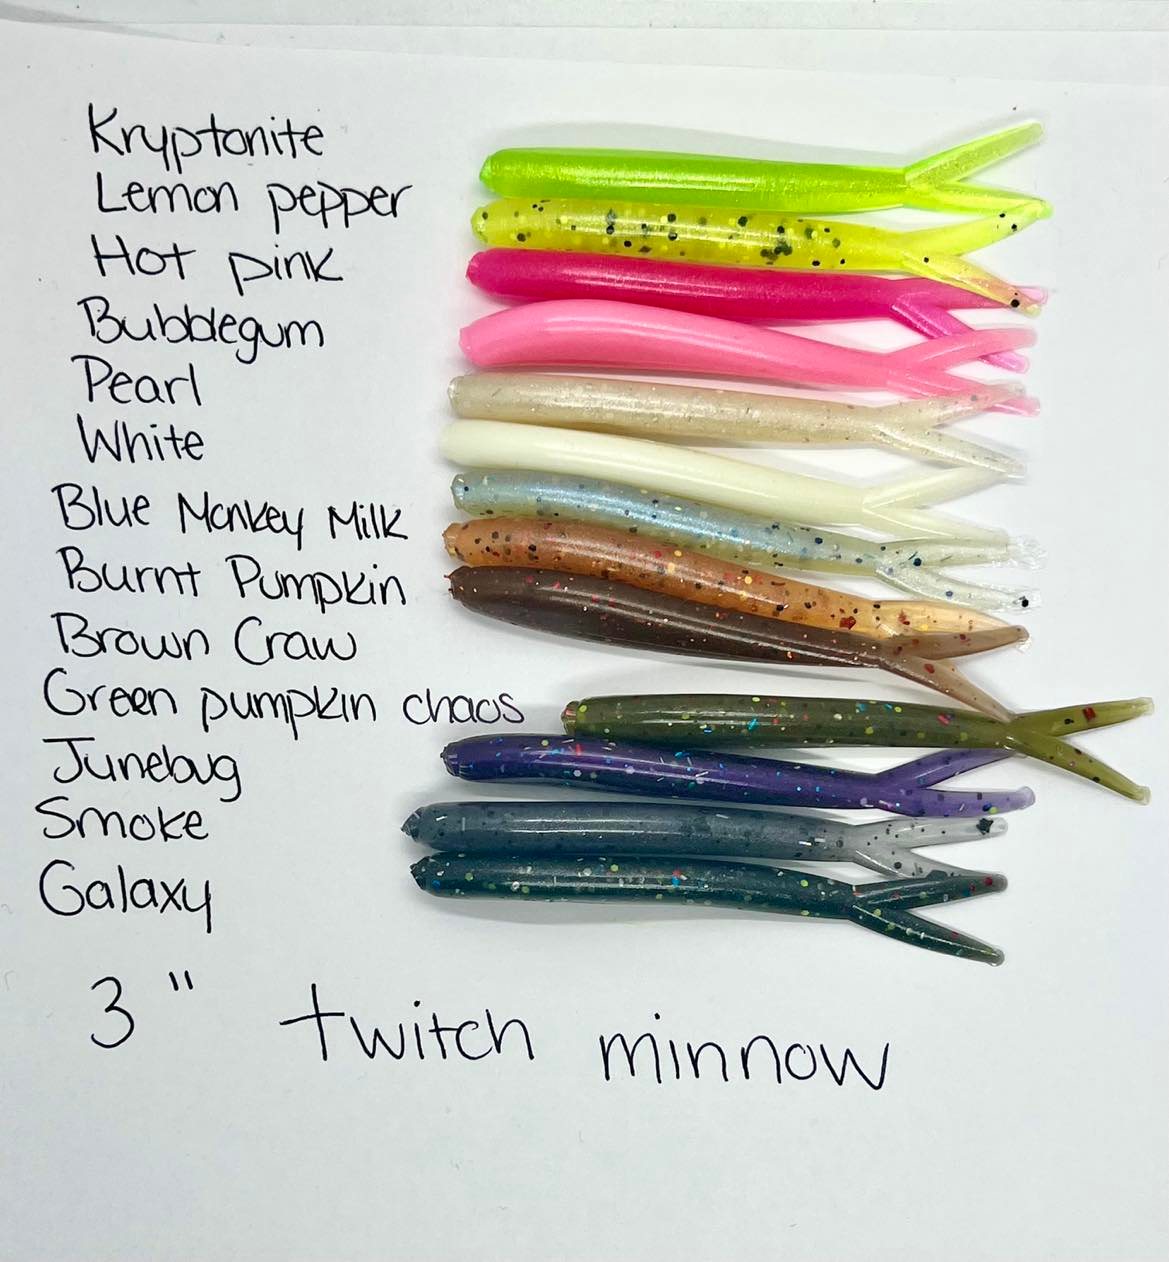 Kryptonite
Lemon pepper
Hot pink
Bubblegum
Pearl
White
Blue Monkey Milk
Burnt Pumpkin
Brown Craw
Green pumpkin chaos
Junebug
Smoke
Galaxy
3" twitch minnow